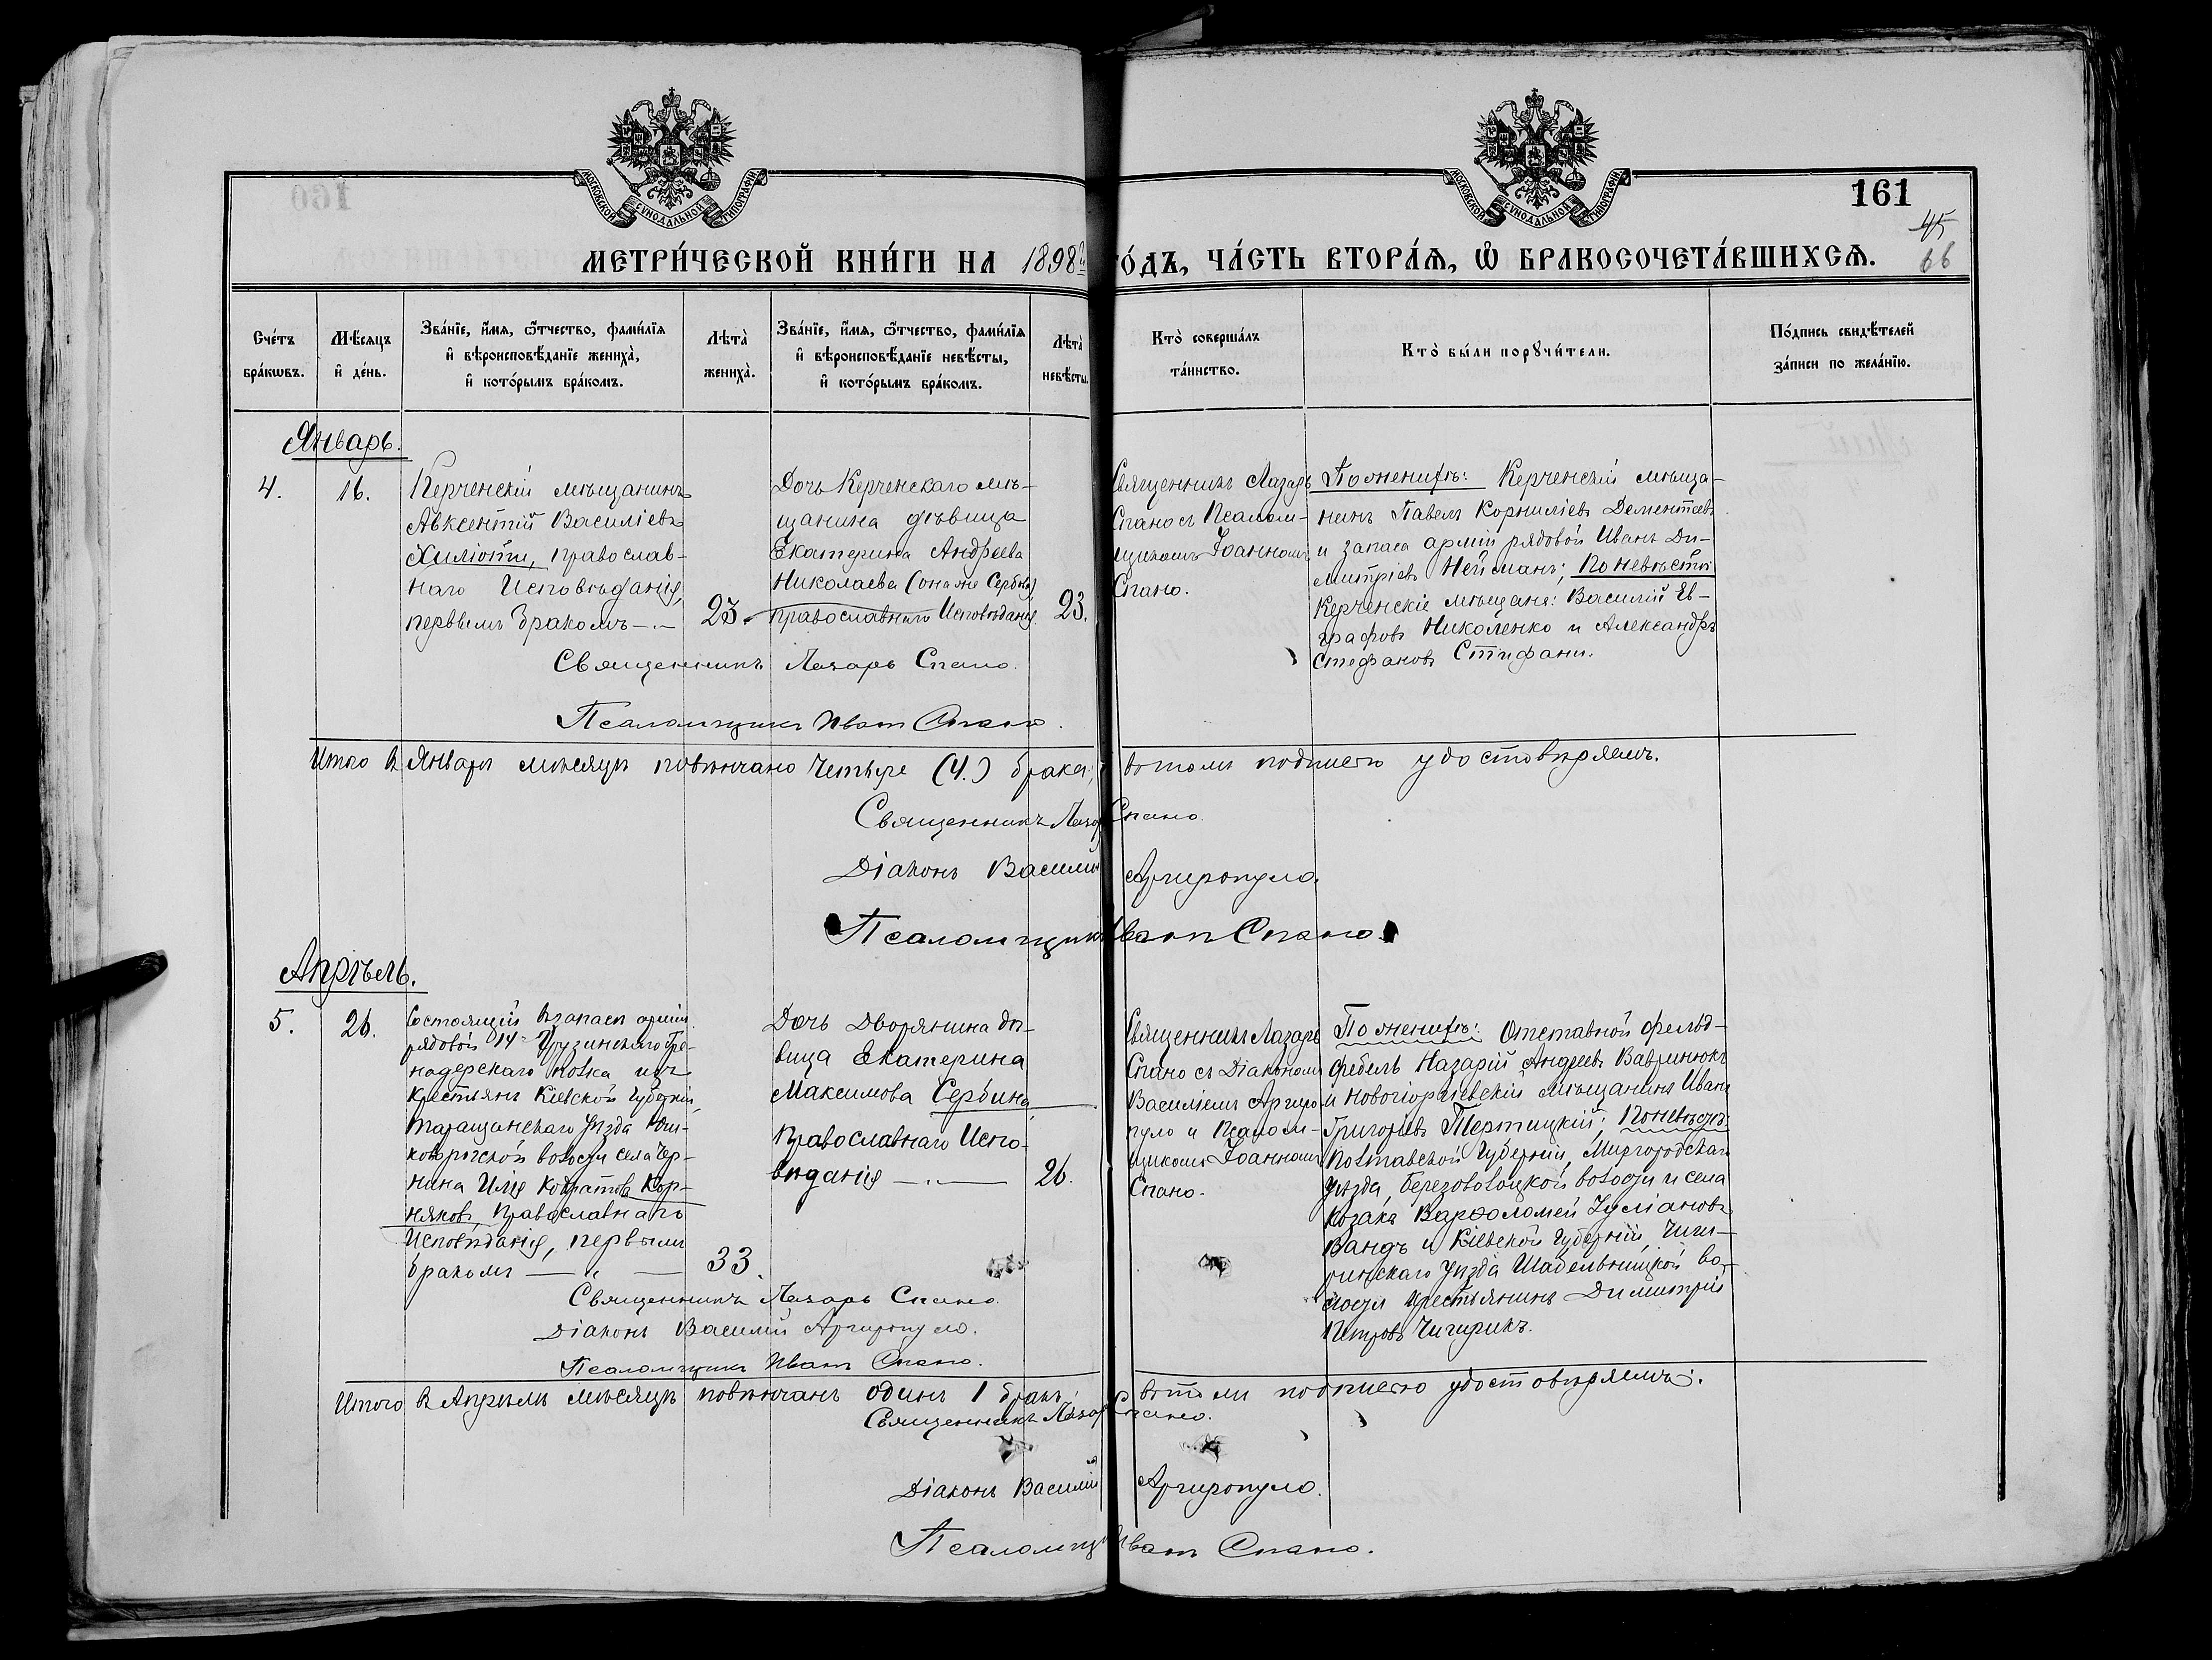 МОСКОВСКОЙ СѴНОДАЛЬНОЙ ТИПОГРАФІИ
МОСКОВСКОЙ СѴНОДАЛЬНОЙ ТИПОГРАФІИ
161
45
66
МЕТРИ́ЧЕСКОЙ КНИ́ГИ НА 1898й ГО́ДЪ, ЧА́СТЬ ВТОРА́Ѧ, Ѡ БРАКОСОЧЕТА́ВШИХСѦ.
Сче́тъ
бра́кѡвъ.
Мѣ́сяцъ
и҆ де́нь.
Зва́нїе, и҆́мѧ, ѻ҆́тчество, фами́лїѧ
и҆ вѣроисповѣ́данїе жениха̀,
и҆ кото́рымъ бра́комъ.
Лѣта̀
жениха̀.
Зва́нїе, и҆́мѧ, ѻ҆́тчество, фами́лїѧ
и҆ вѣроисповѣ́данїе невѣ́сты,
и҆ кото́рымъ бра́комъ.
Лѣта̀
невѣ́сты.
Кто̀ соверша́лъ
та́инство.
Кто̀ бы́ли порꙋчи́тели.
По́дпись свидѣ́телей
за́писи по жела́нїю.
Январь.
4.
16.
Керченскій мѣщанинъ
Авксентій Василіевъ
Хиліоти, православ-
наго Исповѣданія,
первымъ бракомъ —
23.
Дочь Керченскаго мѣ-
щанина дѣвица
Екатерина Андреева
Николаева (она же Сербина)
православнаго Исповѣданія.
23.
Священникъ Лазарь
Спано съ Псалом-
щикомъ Іоанномъ
Спано.
По женихѣ: Керченскій мѣща-
нинъ Павелъ Корниліевъ Дементьевъ
и запаса арміи рядовой Иванъ Ди-
митріевъ Нейманъ; По невѣстѣ
Керченскіе мѣщане: Василій Ев-
графовъ Николенко и Александръ
Стефановъ Стифани.
Священникъ Лазарь Спано.
Псаломщикъ Иванъ Спано.
Итого въ Январѣ мѣсяцѣ повѣнчано четыре (4.) брака, въ томъ подписью удостовѣряемъ.
Священникъ Лазарь Спано.
Діаконъ Василій Аргиропуло.
Псаломщикъ Иванъ Спано.
Апрѣль.
5.
26.
Состоящій въ запасѣ арміи
рядовой 14 Грузинскаго Гре-
надерскаго полка изъ
крестьянъ Кіевской Губерніи,
Таращанскаго уѣзда
волости села Чер-
нина Илія Кондратовъ Кор-
няковъ, Православнаго
Исповѣданія, первымъ
бракомъ — „ —
33.
Дочь Дворянина дѣ-
вица Екатерина
Максимова Сербина,
Православнаго Испо-
вѣданія — „ —
26.
Священникъ Лазарь
Спано съ Діакономъ
Василіемъ Аргиро-
пуло и Псалом-
щикомъ Іоанномъ
Спано.
По женихѣ: Отставной фельд-
фебель Назарій Андреевъ Вавринюкъ
и Новогіоргіевскій мѣщанинъ Иванъ
Григорьевъ Тертицкій; По невѣстѣ
Полтавской Губерніи, Миргородскаго
уѣзда, Березовол­оцкой волости и села
козакъ Варѳоломей Іуліановъ
Вандъ и Кіевской Губерніи, Чиги-
ринскаго уѣзда Шабельницкой во-
лости крестьянинъ Димитрій
Петровъ Чигирикъ.
Священникъ Лазарь Спано.
Діаконъ Василій Аргиропуло.
Псаломщикъ Иванъ Спано.
Итого въ Апрѣлѣ мѣсяцѣ повѣнчанъ одинъ 1 бракъ, въ томъ подписью удостовѣряемъ.
Священникъ Лазарь Спано.
Діаконъ Василій Аргиропуло.
Псаломщикъ Иванъ Спано.